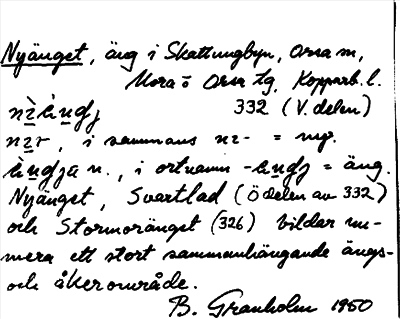 Nyänget, äng i Skattungbyn, Orsa sn,
Mora o Orsa tg, Kopparb. l.
332 (V. delen)
i sammans nz- = ny.
n., i ortnamn = äng.
Nyänget, Svartlad (Ö delen av 332)
och Stormoränget (326) bildar nu-
mera ett stort sammanhängande ängs-
och åkerområde.
B. Granholm 1950